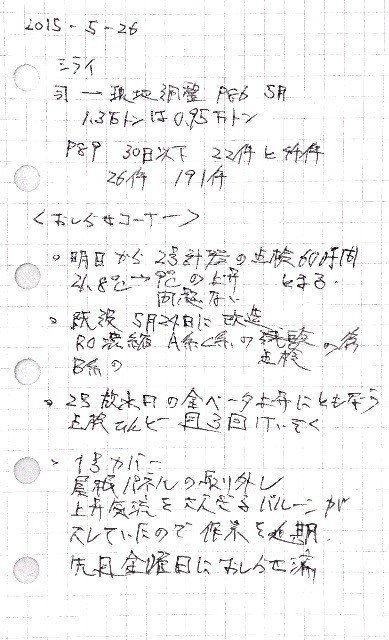 2015-5-26
ミライ
司 ー 現地調整 P86 5月
1.3万トンは0.95万トン
P89 30日以下 22件と 件
26件 191件
<おしらせコーナー>
。明日から 2号計器の点検 60時間
21.8℃→ ℃の上昇 とまる.
問題ない
。既設 5月24日に改造
RO濃縮 A系C系の 試験 の為
B系の 点検
。2号放水口の全ベータ上昇にともなう
点検 月3回
。1号カバー
屋根パネルの取り外し
上昇気流をおさえるバルーンが
していたので 作業を延期.
先月金曜日におしらせ済